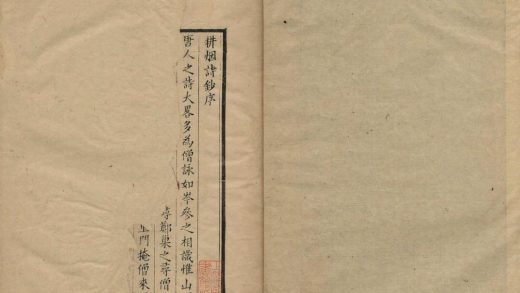 耕烟詩鈔序
唐人之詩大畧多為僧詠如岑參之相識惟山
寺鄭巢之尋僧
上門掩僧來